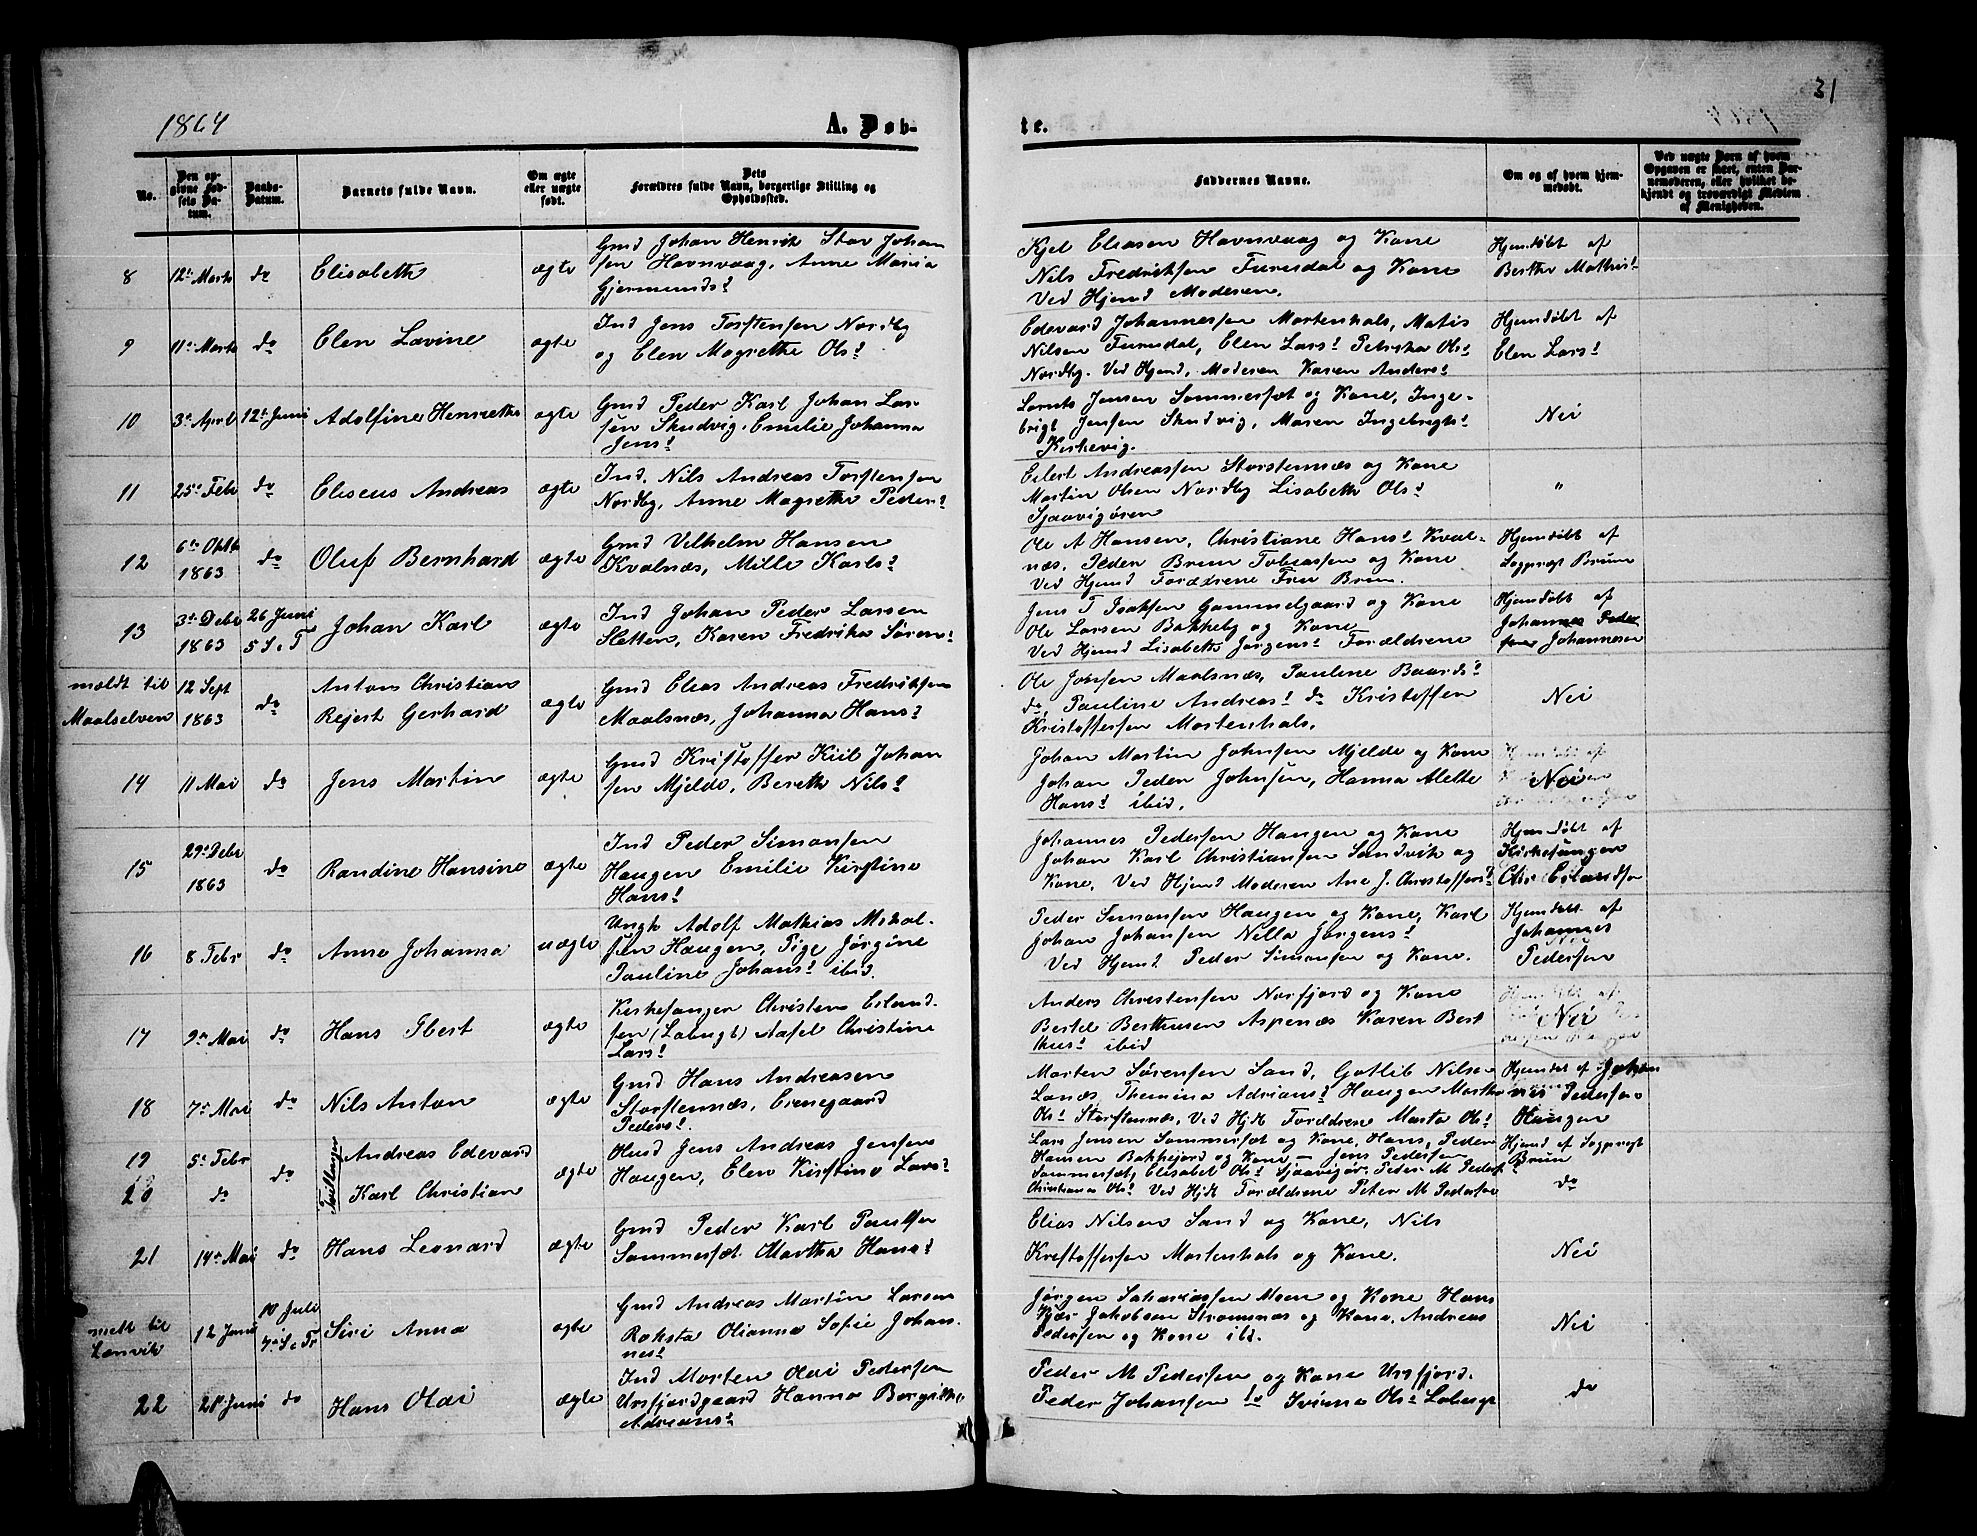 1864
A. Døb-
te.
31
No.
Den opgivne Fødsels Datum.
Daabs-Datum.
Barnets fulde Navn.
Om ægte eller uægte født.
Dets Forældres fulde Navn, borgerlige Stilling og Opholdssted.
Faddernes Navne.
Om og af hvem hjemmedøbt.
Ved uægte Børn af hvem Opgaven er skeet, enten Barnemoderen, eller hvilket bekjendt og troværdigt Medlem af Menigheden.
8 12te Marts do Elisabeth ægte
Gmd Johan Henrik Stav Johan
sen Havnvaag, Anne Maria
Gjermundsd
Kjel Eliasen Havnvaag og Kone
Nils Fredriksen Furudal og Kone
Ved Hjemd Moderen.
Hjemdøbt af
Berthe Mathisd
9 11te Marts do Elen Lavine ægte
Ind Jens Torstensen Nordby
og Elen Magrethe Olsd
Edevard Johannessen Mortenhals, Matis
Nilsen Furudal, Elen Larsd Petrika Olsd
Nordby. Ved Hjemd, Moderen Karen Andersd
Hjemdøbt af
Elen Larsd
10 3de April 12te Juni Adolfine Henrette ægte
Gmd Peder Karl Johan Lar
sen Skudvig, Emilie Johanna
Jensd
Lornts Jensen Sommersæt og Kone, Inge-
brigt Jensen Skudvig, Maren Ingebrigtsd
Kirkevig.
Nei
11 25de Febr do Eliseus Andreas ægte
Ind. Nils Andreas Torstensen
Nordby, Anne Magrethe Pedersd
Eilert Andreassen Storstennæs og Kone
Martin Olsen Nordby Lisabeth Olsd
Sjaavigøren
"
12 6te Oktb 1863 do Oluf Bernhard ægte
Gmd Vilhelm Hansen
Kvalnæs, Mille Karlsd
Ole A Hansen, Christiane Hansd Kval-
næs, Peder Brun Tobiassen og Kone
Ved Hjemd Forældrene Fru Brun.
Hjemdøbt af
Sogprest Brun
13 3de Debr 1863 26 Juni 5 S. e. T Johan Karl ægte
Ind Johan Peder Larsen
Sletten, Karen Fredrika Sørensd
Jens T Isaksen Gammelgaard og Kone
Ole Larsen Bakkeby og Kone
Ved Hjemd Lisabeth Jørgensd Forældrene
Hjemdøbt af
Johannes Peder
Johannesen
mældt til
Maalselven
12 Sept 1863 do
Anton Christian
Rejert Gerhard
ægte
Gmd Elias Andreas Fredriksen
Maalsnæs, Johanna Hansd
Ole Jonsen Maalsnæs, Pauline Baardsd
do, Pauline Andreasd do Kristoffen
Kristoffersen Mortenhals.
Nei
14 11 Mai do Jens Martin ægte
Gmd Kristoffer Kiil Johan
sen Mjelde, Bereth Nilsd
Johan Martin Johnsen Mjelde og Kone
Johan Peder Johnsen, Hanna Alette
Hansd ibid.
Nei
15 29de Debr 1863 do Randine Hansine ægte
Ind Peder Simonsen
Haugen Emilie Kirstine
Hansd
Johannes Pedersen Haugen og Kone
Johan Karl Christiansen Sandvik og
Kone, Ved Hjemd Moderen Ane J. Christoffersd
Hjemdøbt af
Kirkesanger
Chr Erlandsen
16 8 Febr do Anne Johanna uægte
Ungk Adolf Mathias Mikal-
sen Haugen, Pige Jørgine
Pauline Johansd ibid.
Peder Simonsen Haugen og Kone, Karl
Johan Johansen Nella Jørgensd
Ved Hjemd Peder Simonsen og Kone.
Hjemdøbt af
Johannes
Pedersen
17 9de Mai do Hans Ibert ægte
Kirkesanger Christen Erland-
sen (Løbugt) Aafel Christine
Larsd
Anders Christensen Norfjord og Kone
Bertel Berthusen Aspenæs Karen Bert
husd ibid
Nei
18 7de Mai do Nils Anton ægte
Gmd Hans Andreasen
Storstennæs, Erenegaard
Pedersd.
Morten Sørensen Sand, Gotlib Nilsen
Lanæs, Themina Adriansd Haugen Martha
Olsd Storstennæs, Ved Hjd Forældrene Marta Olsd
Hjemdøbt af Johan
nes Pedersen
Haugen
19 5te Febr do Tvillinger Andreas Edevard
20 do Karl Christian
ægte
Husd Jens Andreas Jensen
Haugen, Elen Kirstine Larsd
Lars Jensen Sommersæt og Kone, Hans, Peder
Hansen Bakkejord og Kone – Jens Pedersen
Sommersæt, Elisabet Olsd Sjaavigør, Peder M Peders
Christianna Olsd Ved Hjd Forældrene Peter M Pedersen
Hjemd af Sogprest
Brun
do
21 14de Mai do Hans Leonard ægte
Gmd Peder Karl Paulsen
Sommersæt Martha Hansd
Elias Nilsen Sand og Kone, Nils
Kristoffersen Mortenhals og Kone.
Nei
melt til
Lenvik
12 Juni 10 Juli 7de S. e. Tr Siri Anna ægte
Gmd Andreas Martin Larsen
Roksta Olianna Sofie Johan-
nesd
Jørgen Sakariassen Moen og Kone Hans
Kjær Jakobsen Strømsnæs og Kone, Andreas
Pedersen og Kone ibd.
Nei
22 21de Juni do Hans Olai ægte
Ind Morten Olai Pedersen
Ursfjordgaard Hanna Bergithe
Adriansd
Peder M Pedersen og Kone Ursfjord.
Peder Johansen do Ivinna Olsd Løbergt
do